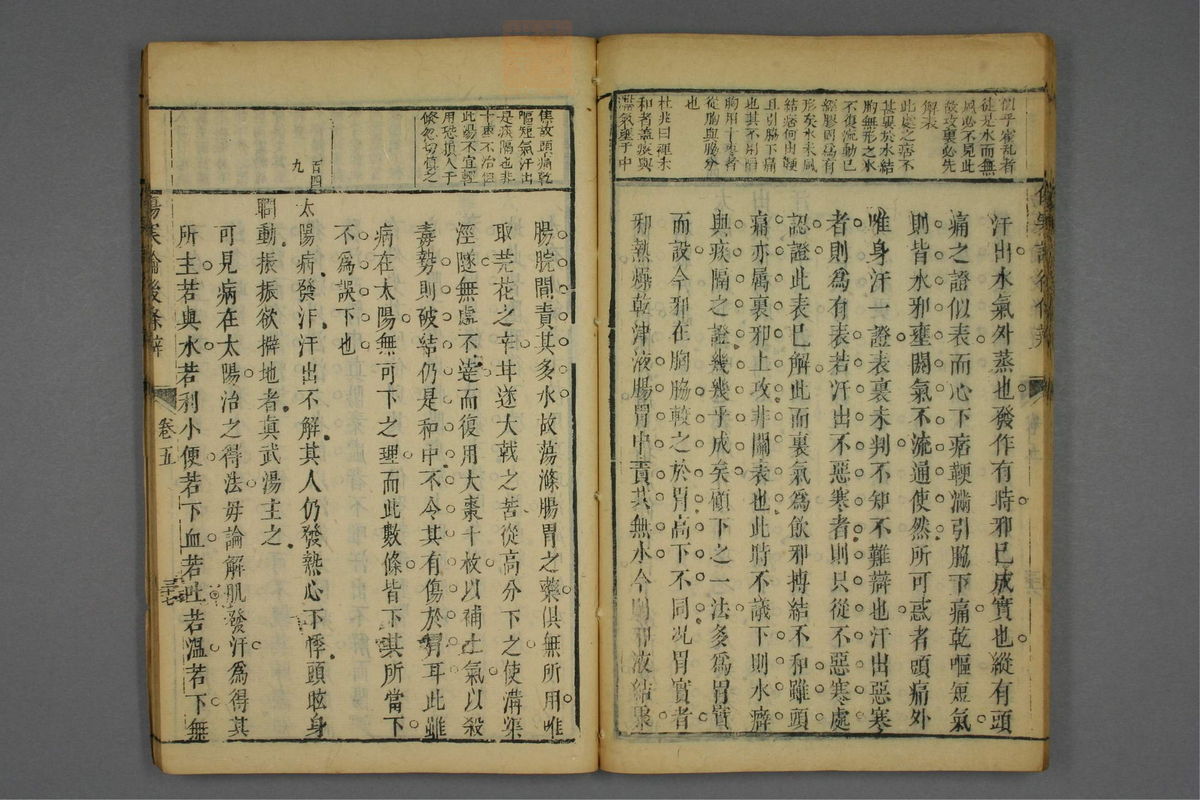 徒是水而無
風必不見此
故攻裏必先
解表
此處之痞不
甚異於水結
胸無形之水
不復流動已
經膠固為有
形矣水未風
結痞何由鞕
且引脇下痛
也其不用陷
胸用十棗者
從胸與脇分
也
杜兆曰裡未
和者蓋痰與
汗出水氣外蒸也發作有時邪已成實也縱有頭
痛之證似表而心下痞鞕滿引脇下痛乾嘔短氣
則皆水邪壅闕氣不流通使然所可惑者頭痛外
唯身汗一證表裏未判不知不難辯也汗出惡寒
者則爲有表若汗出不惡寒者則只從不惡寒處
認證此表已解此而裏氣爲飲邪搏結不和雖頭
痛亦属裏邪上攻非關表也此時不議下則水癖
與痰隔之證幾幾乎成矣顧下之一法多爲胃實
而設今邪在胸脇較之於胃高下不同况胃實者
邪熱燥乾津液腸胃中責其無水今則邪液結聚
焦故頭痛乾
嘔短氣汗出
是痰隔也非
十棗不治但
此湯不宜輕
用恐損人于
倐忽切慎之
百四
九
腸脘間責其多水故蕩滌腸胃之藥俱無所用唯
取芫花之辛甘遂大戟之苦從高分下之使溝渠
淫隧無處不達而復用大棗十枚以補土氣以殺
毒勢則破結仍是和中不令其有傷於胃耳此雖
病在太陽無可下之理而此數條皆下其所當下
不爲誤下也
太陽病發汗汗出不解其人仍發熱心下悸頭眩身
瞤動振振欲擗地者眞武湯主之
可見病在太陽治之得法毋論解肌發汗爲得其
所主若與水若利小便若下血若吐若溫若下無
傷寒論後條辨
卷五
三十七